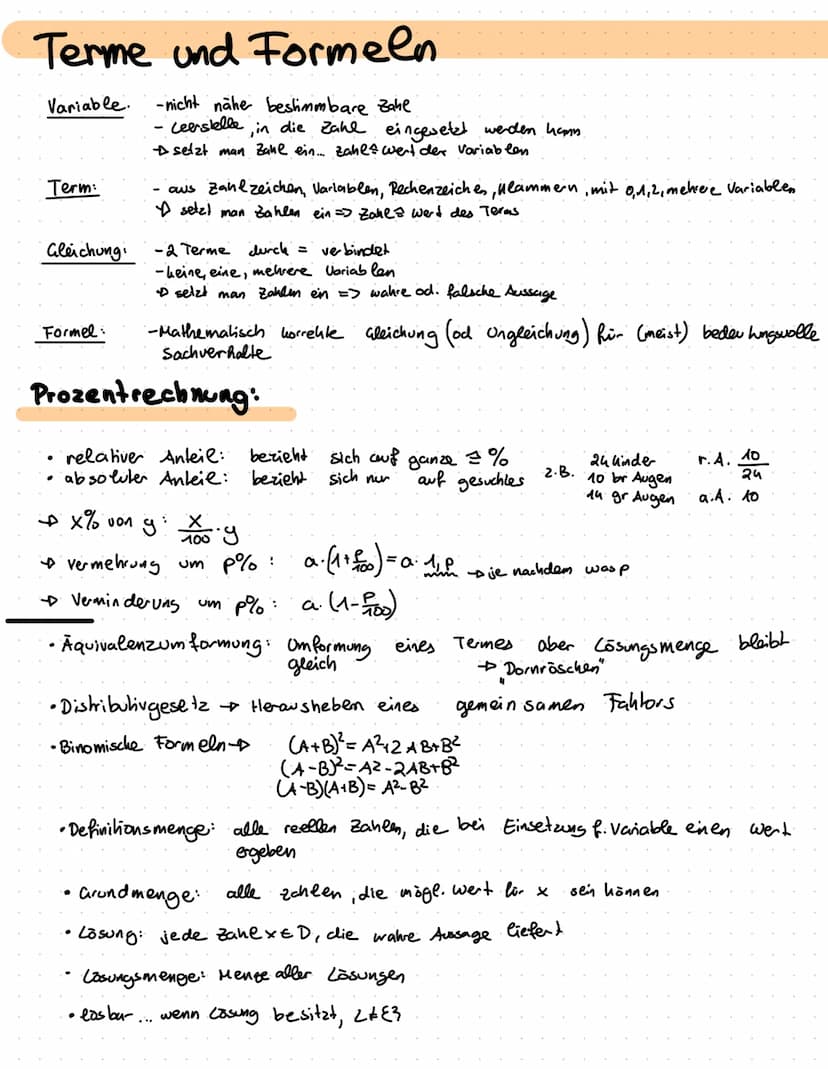 Terme und Formeln
Variable: -nicht näher bestimmbare Zahl
- Leerstelle, in die Zahl eingesetzt werden kann
→ setzt man Zahl ein... Zahl ≙ Wert der Variablen
Term: - aus Zahlzeichen, Variablen, Rechenzeichen, Klammern, mit 0,1,2, mehrere Variablen
→ setzt man Zahlen ein => Zahl ≙ Wert des Terms
Gleichung: - 2 Terme durch = verbindet
- keine, eine, mehrere Variablen
→ setzt man Zahlen ein => wahre od. falsche Aussage
Formel: -Mathematisch korrekte Gleichung (od Ungleichung) für (meist) bedeutungsvolle
Sachverhalte
Prozentrechnung:
• relativer Anteil: bezieht sich auf ganze ≙ % z.B. 24 Kinder r.A. 10/24
• absoluter Anteil: bezieht sich nur auf gesuchtes 10 br Augen
14 gr Augen a.A. 10
→ x% von y: x/100 · y
→ Vermehrung um p%: a·(1+p/100) = a·1,p → je nachdem was p
→ Verminderung um p%: a·(1-p/100)
• Äquivalenzumformung: Umformung eines Termes aber Lösungsmenge bleibt
gleich → "Dornröschen"
• Distributivgesetz → Herausheben eines gemeinsamen Faktors
• Binomische Formeln → (A+B)²= A²+2AB+B²
(A-B)²= A2-2AB+B²
(A-B)(A+B)= A²-B²
• Definitionsmenge: alle reellen Zahlen, die bei Einsetzung f. Variable einen Wert
ergeben
• Grundmenge: alle zahlen, die mögl. Wert für x sein können
• Lösung: jede Zahl x ∈ D, die wahre Aussage liefert
• Lösungsmenge: Menge aller Lösungen
• lösbar... wenn Lösung besitzt, L≠{}